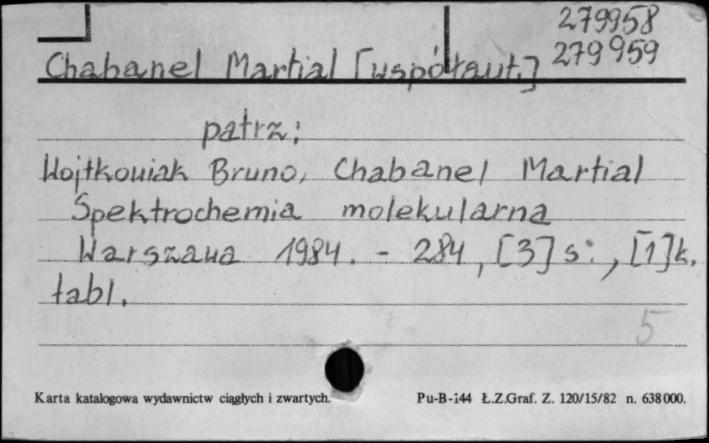 279958
279959
Chabanel Martial [współaut.]
patrz:
Wojtkowiak Bruno, Chabanel Martial
Spektrochemia molekularna
Warszawa 1984. - 284, [3] s:, [1] k.
tabl.
5
Karta katalogowa wydawnictw ciągłych i zwartych.
Pu-B-144 Ł.Z.Graf. Z. 120/15/82 n. 638000.